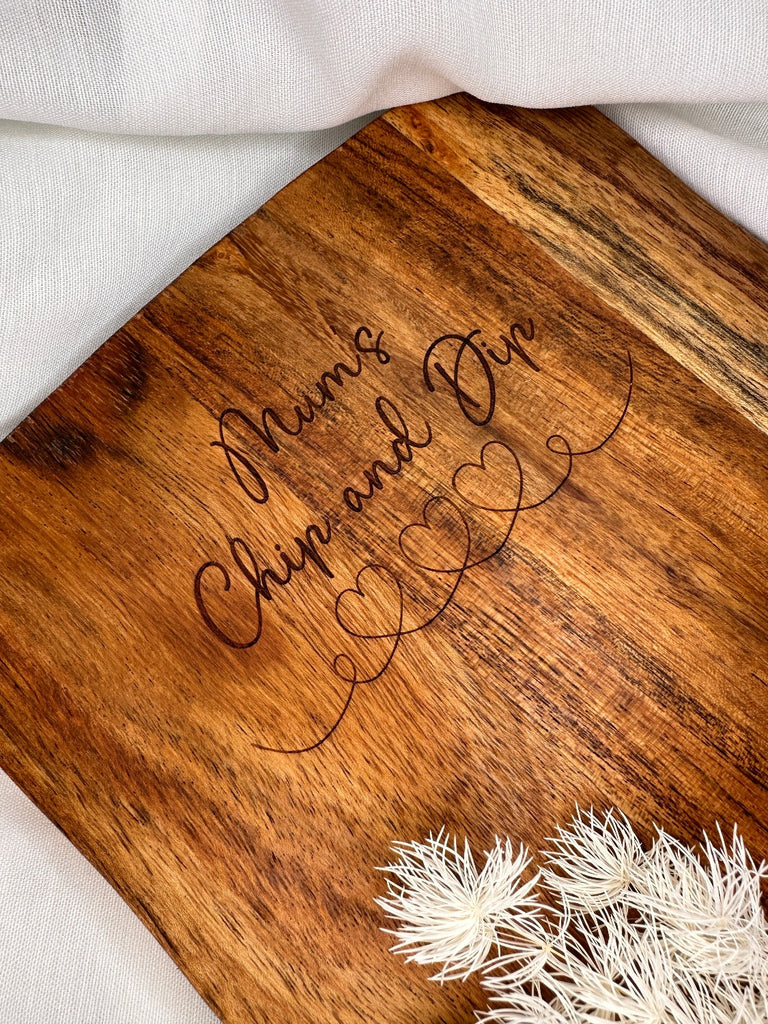 Mum's
Chip and Dip